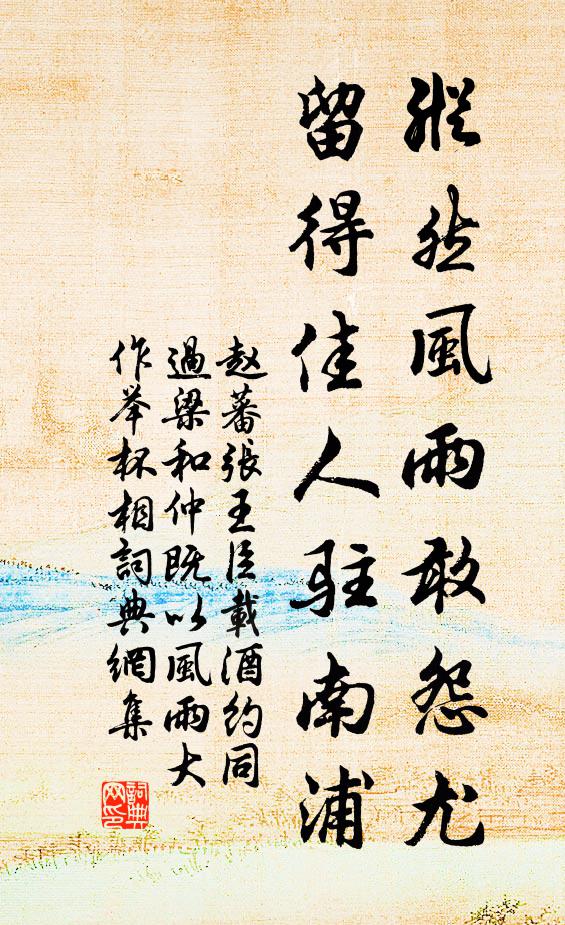 縱然風雨敢怨尤
留得佳人駐南浦
赵蕃張王臣載酒約同
過梁和仲既以風雨大
作举杯相詞典網集
詞典
网印